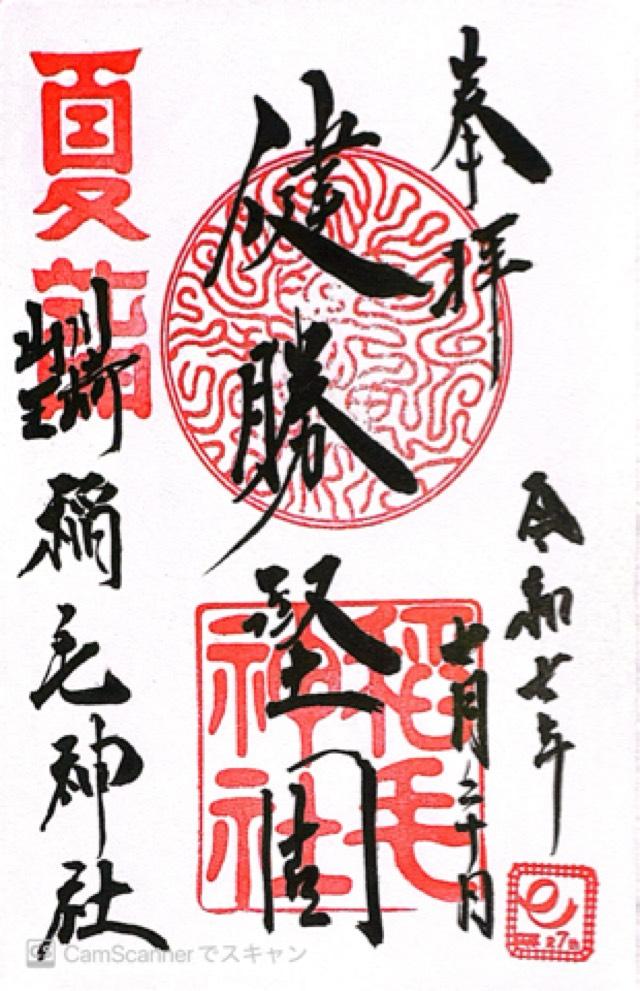 奉拝
令和七年
七月二十日
健勝堅固
稲毛神社
夏詣
川崎
山王
稲毛神社
CS CamScannerでスキャン